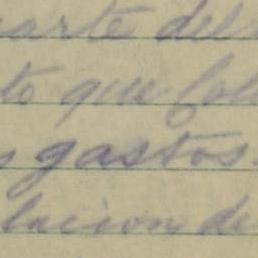 arte del
to que fal
s gastos.
lacion de